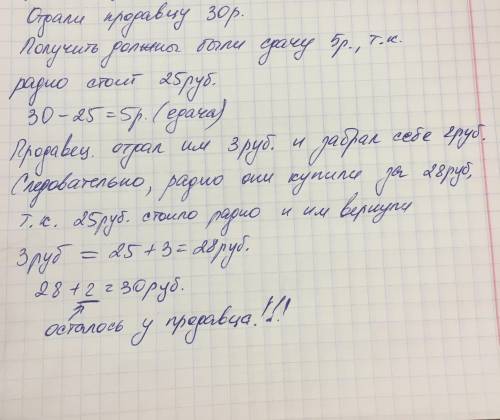 Отдали продавцу 30р.
Получить должны были сдачу 5р., т.к.
радио стоит 25руб.
30-25=5р. (сдача)
Продавец отдал им 3руб. и забрал себе 2руб.
Следовательно, радио они купили за 28руб,
т.к. 25руб. стоило радио и им вернули
3руб = 25+3=28руб.
28+2=30руб.
осталось у продавца!!!